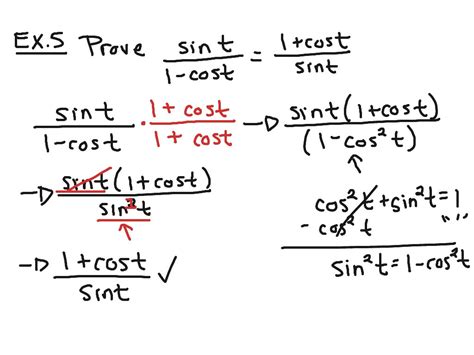 EX.5 Prove sin t / 1-cost = 1+cost / sint
sint / 1-cost · 1+cost / 1+cost → sint(1+cost) / (1-cos²t)
→ sint(1+cost) / sin²t
cos²t + sin²t = 1
- cos²t " "
sin²t = 1-cos²t
→ 1+cost / sint ✓